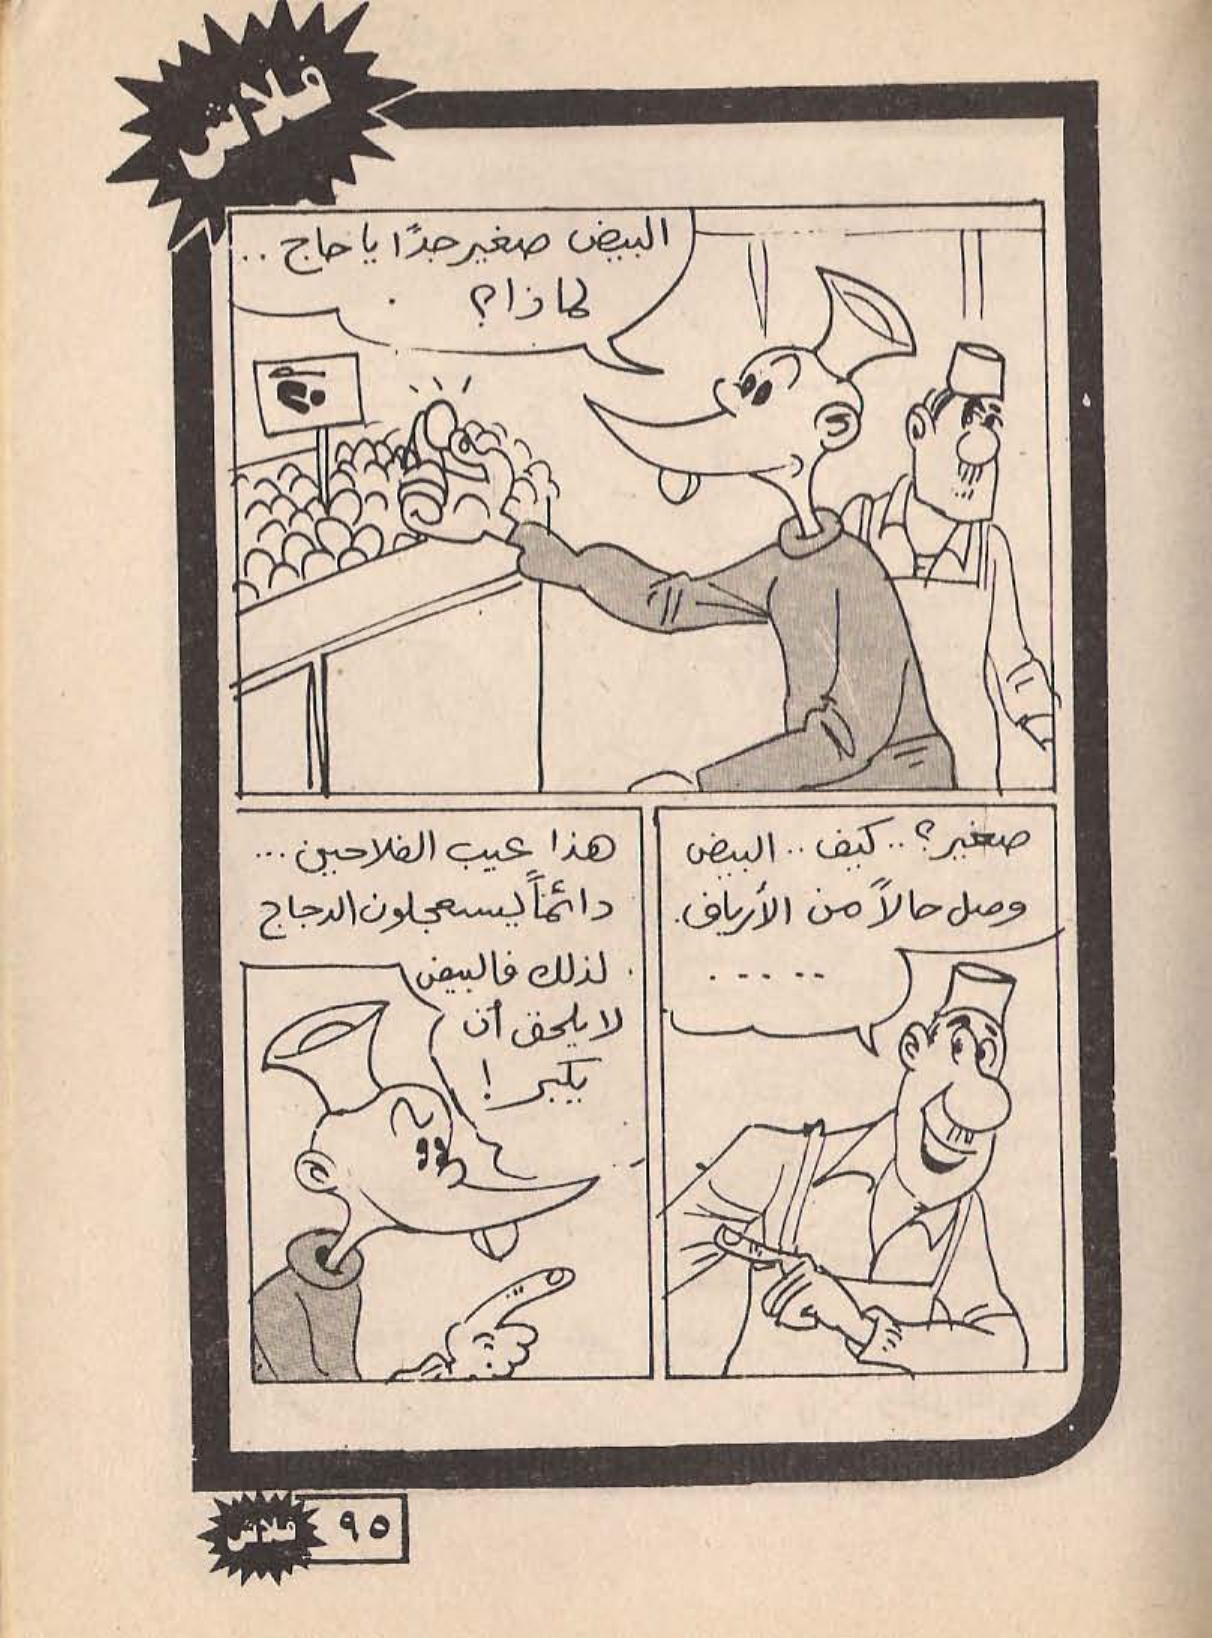 فلاش
البيض صغير جدًا يا حاج ..
لماذا؟
صغير؟ .. كيف .. البيض
وصل حالاً من الأرياف.
.....
هذا عيب الفلاحين ...
دائماً يستعجلون الدجاج
لذلك فالبيض
لا يلحق أن
يكبر !
فلاش ٩٥